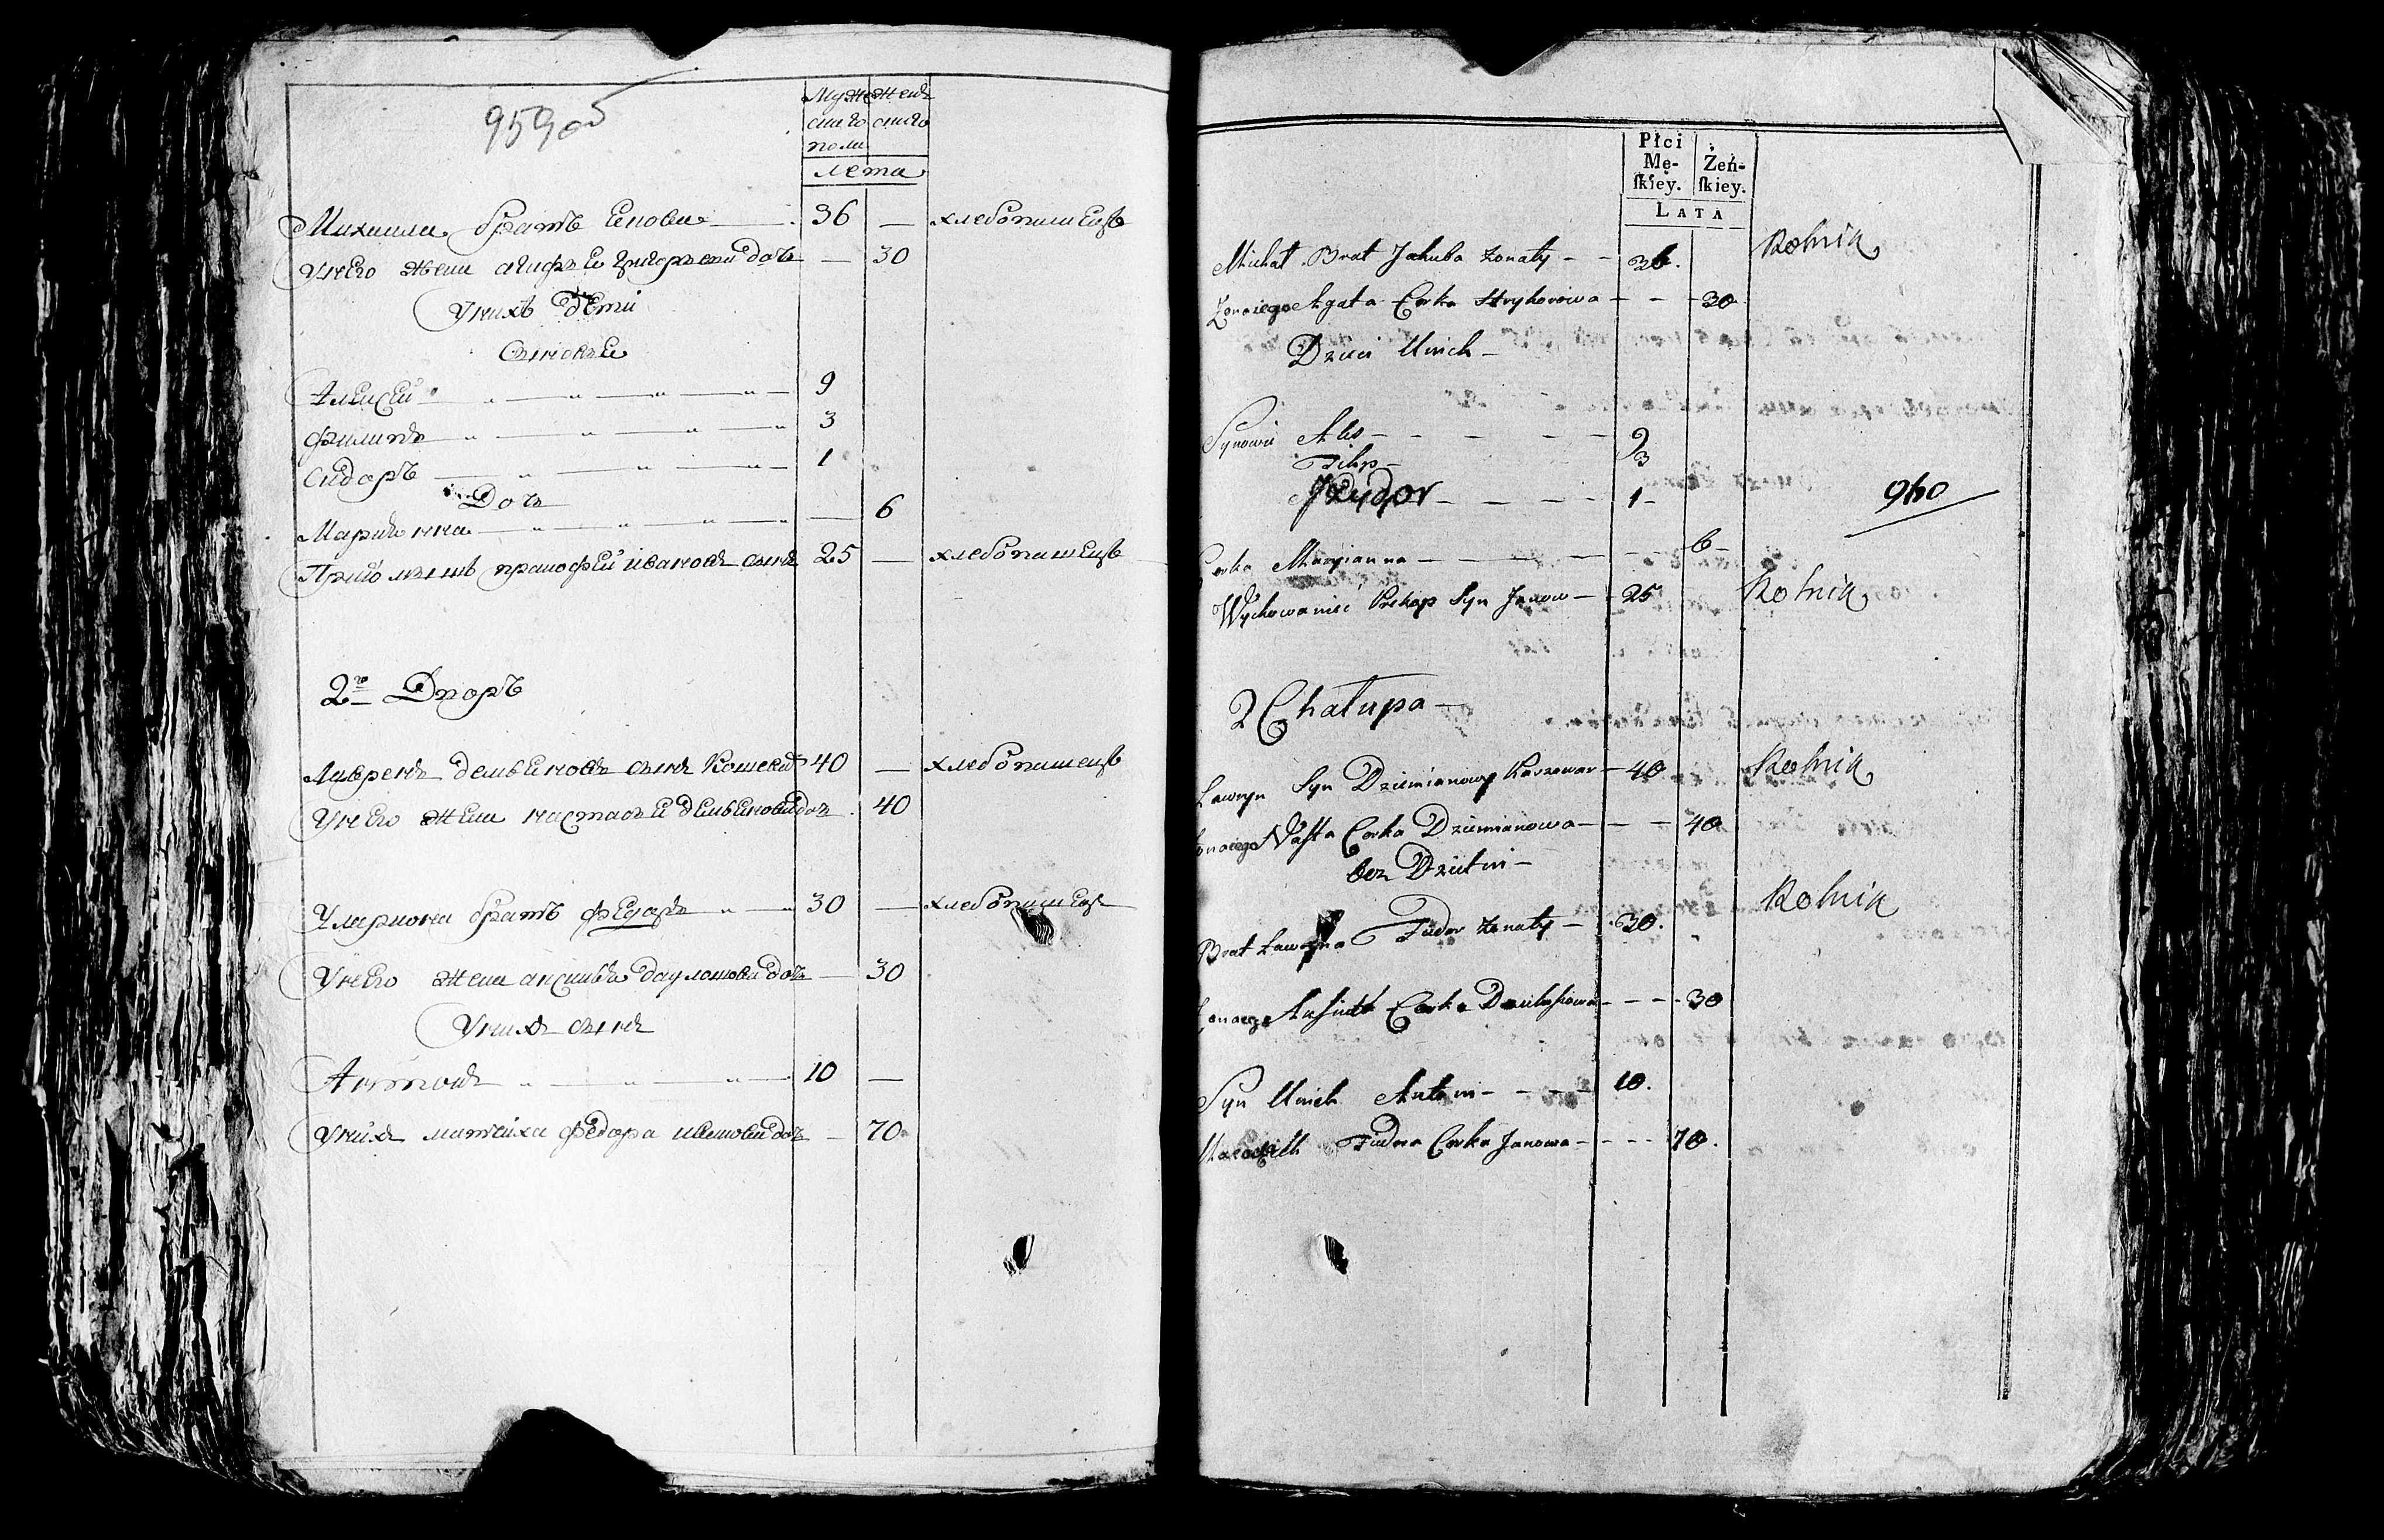 959об
Муже Женс
скаго скаго
пола
Лета
Михаила братъ Якова 36 — хлебопашецъ
Унего жена агафья григорьева дочь — 30
Унихъ дети
Сыновья
Алексей 9
Филипъ 3
Сидоръ 1
Дочь
Марьянна — 6
Приймышъ пракофей ивановъ сынъ 25 — хлебопашецъ
2й Дворъ
Лавренъ демьяновъ сынъ 40 — хлебопашецъ
Унего жена настасья демьянова дочь 40
Улариона братъ федоръ 30 — хлебопашецъ
Унего жена аксинья дочь — 30
Унихъ сынъ
Антонъ 10 —
Унихъ федора иванова дочь — 70
Płci
Mę-
ſkiey. Żeń-
ſkiey.
LATA
Michał Brat Jakuba żonaty - - 36. Rolnik
Żona iego Agata Corka Hryhorowa - - - 30
Dzieci Unich -
Synowie Ales - - - - - 9
Filip - 3
Jzydor - - - - 1 - 960
Corka Maryianna - - - - 6 -
Wychowaniec Prokop Syn Janow - 25 Rolnik
2 Chałupa -
Ławryn Syn Dziemianowy - 40 Rolnik
Żona iego Nasta Corka Dziemianowa - - - 40
bez Dzietni -
Brat Ławryna Fiudor żonaty - 30. Rolnik
Żona iego Corka - - - 30
Syn Unich Antoni - - - - 10.
Fiudora Corka Janowa - - - - 70.